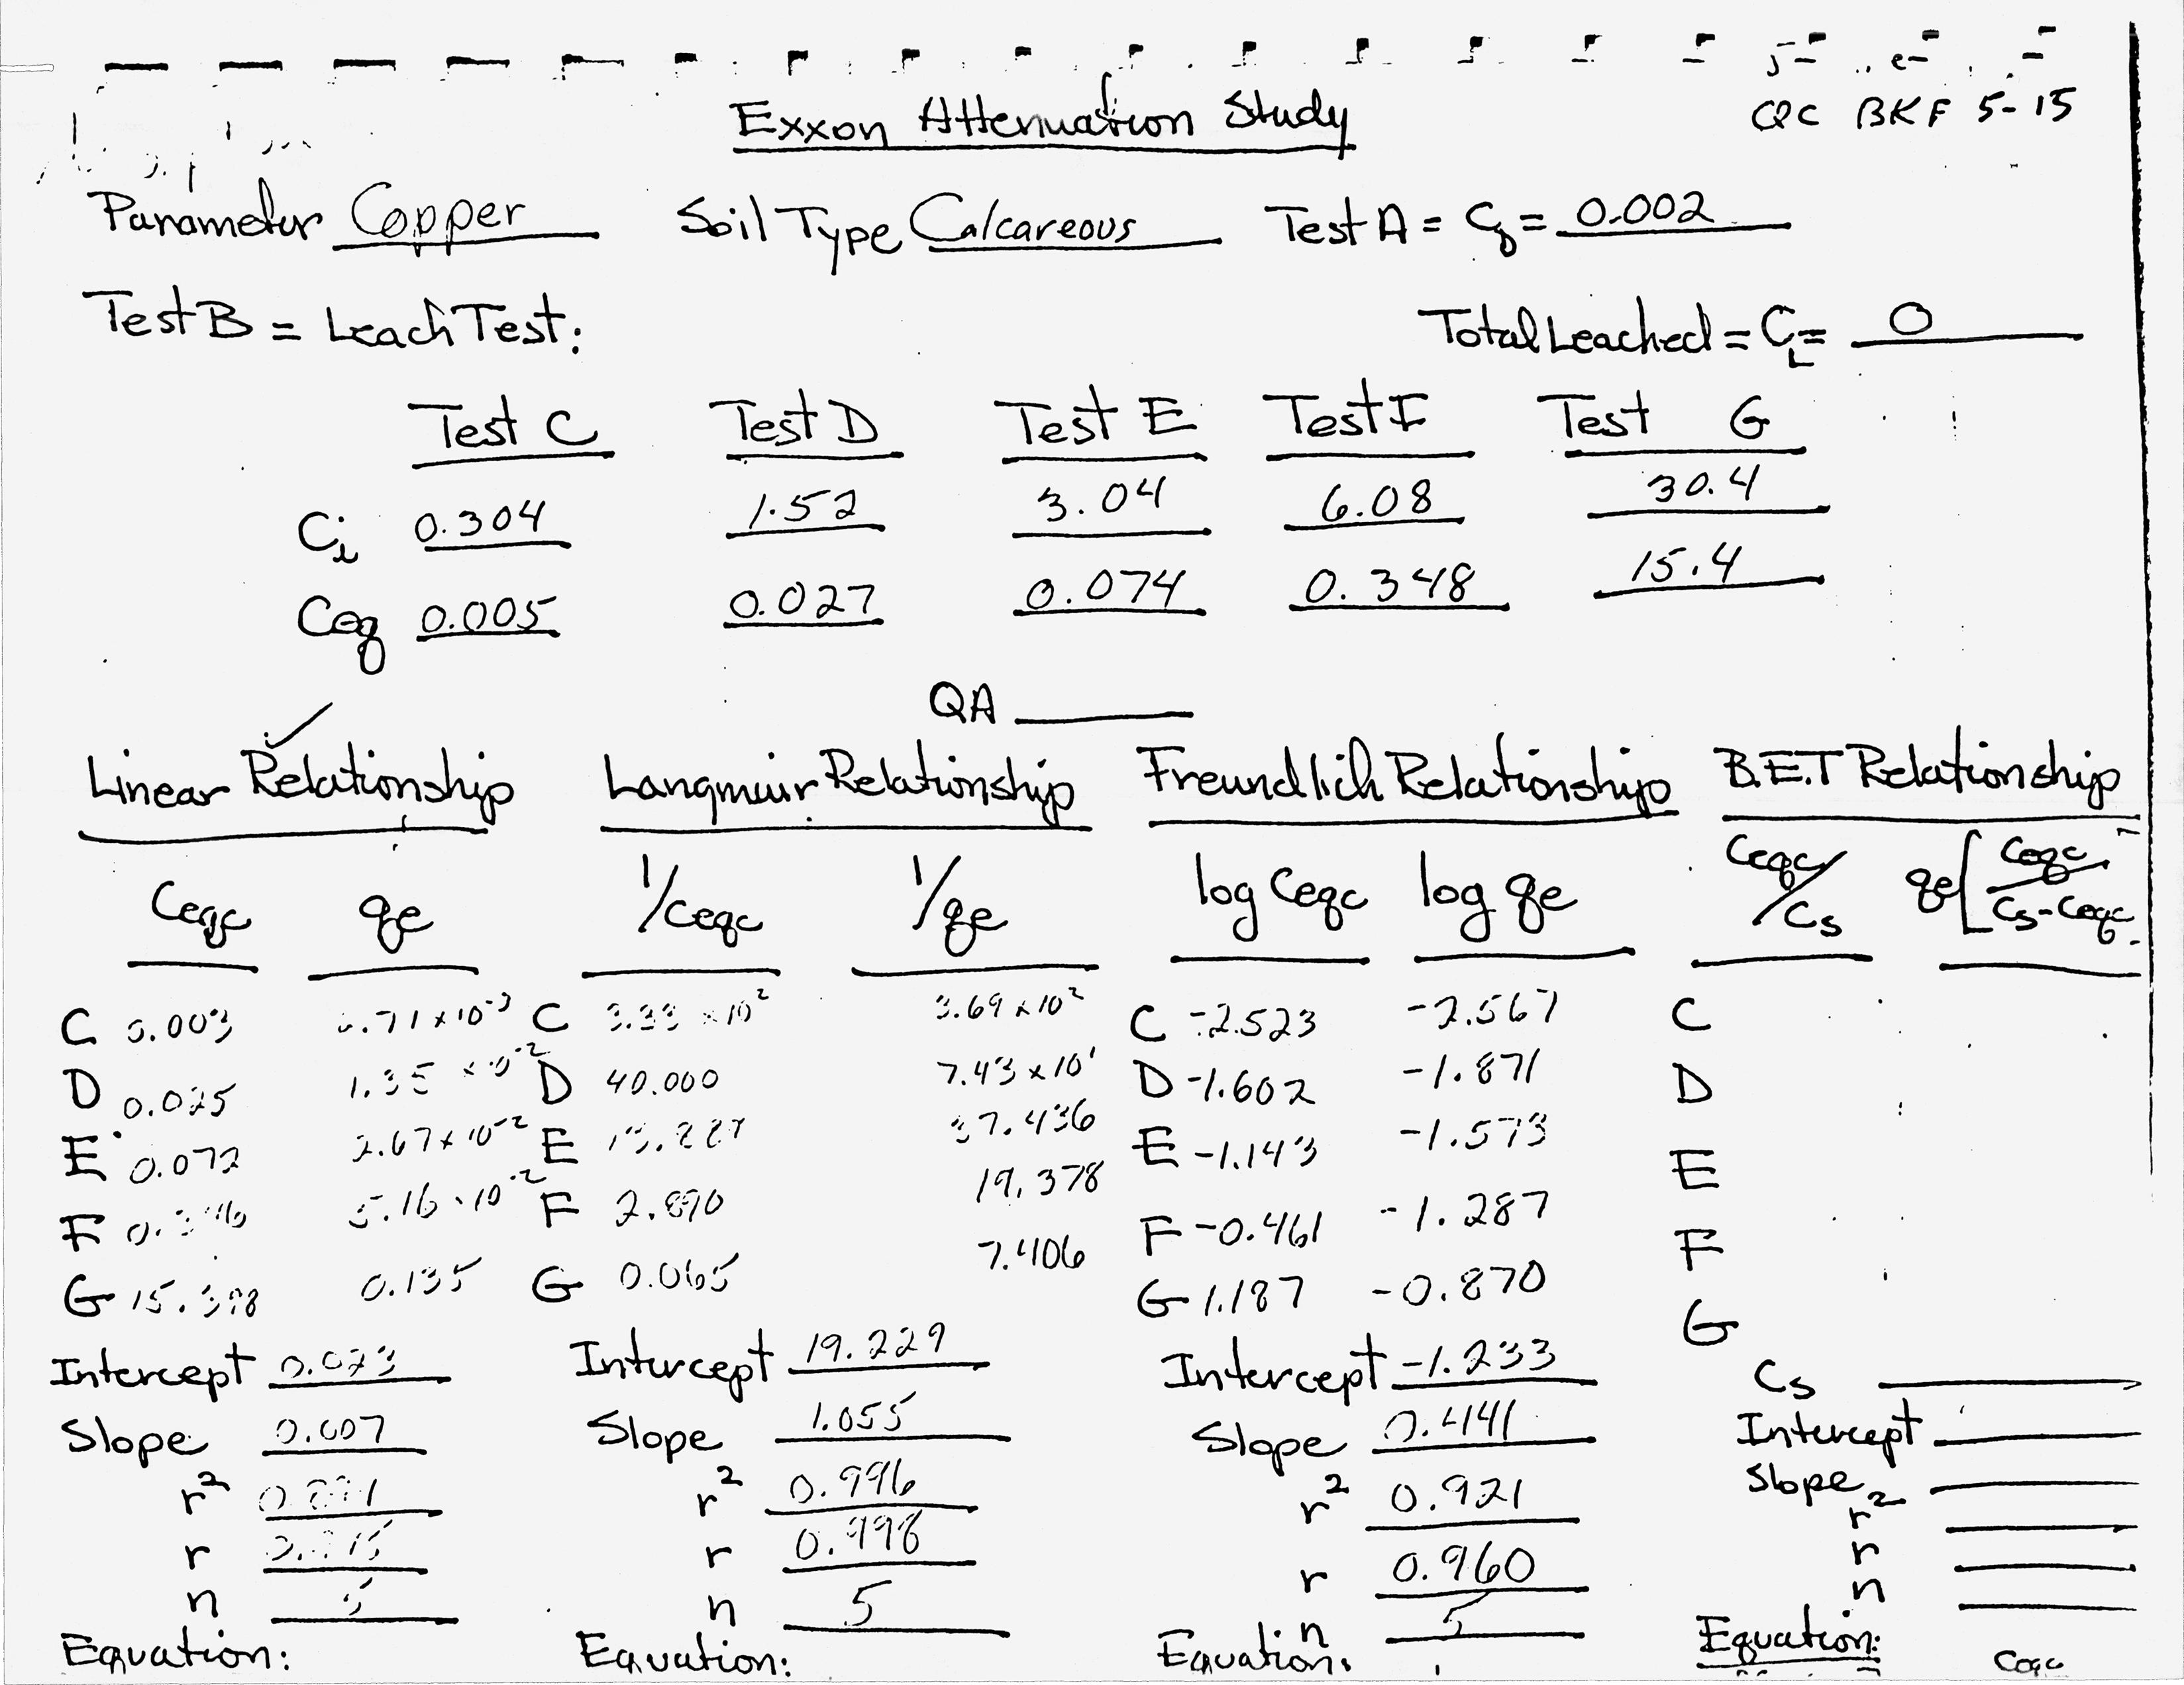 Exxon Attenuation Study
CQC BKF 5-15
Parameter Copper Soil Type Calcareous Test A = Cβ = 0.002
Test B = Leach Test: Total Leached = CL = 0
Test C Test D Test E Test F Test G
Ci 0.304 1.52 3.04 6.08 30.4
Ceq 0.005 0.027 0.074 0.348 15.4
QA
Linear Relationship Langmuir Relationship Freundlich Relationship B.E.T Relationship
Ceqc qe 1/Ceqc 1/qe log Ceqc log qe Ceqc/Cs qe[Ceqc/Cs-Ceqc
C 0.003 .71 x 10-3 C 3.33 x 10² 3.69 x 10² C -2.523 -2.567 C
D 0.025 1.35 x 10-2 D 40.000 7.43 x 10¹ D -1.602 -1.871 D
E 0.072 2.67 x 10-2 E 37.436 E -1.143 -1.573 E
F 0.346 5.16 x 10-2 F 2.890 19.378 F -0.461 -1.287 F
G 15.398 0.135 G 0.065 7.406 G 1.187 -0.870 G
Intercept 0.023 Intercept 19.229 Intercept -1.233 Cs
Slope 0.007 Slope 1.055 Slope 0.441 Intercept
r² r² 0.996 r² 0.921 Slope
r r 0.998 r 0.960 r²
n 5 n 5 n 5 r
n
Equation: Equation: Equation: Equation:
Ceqc